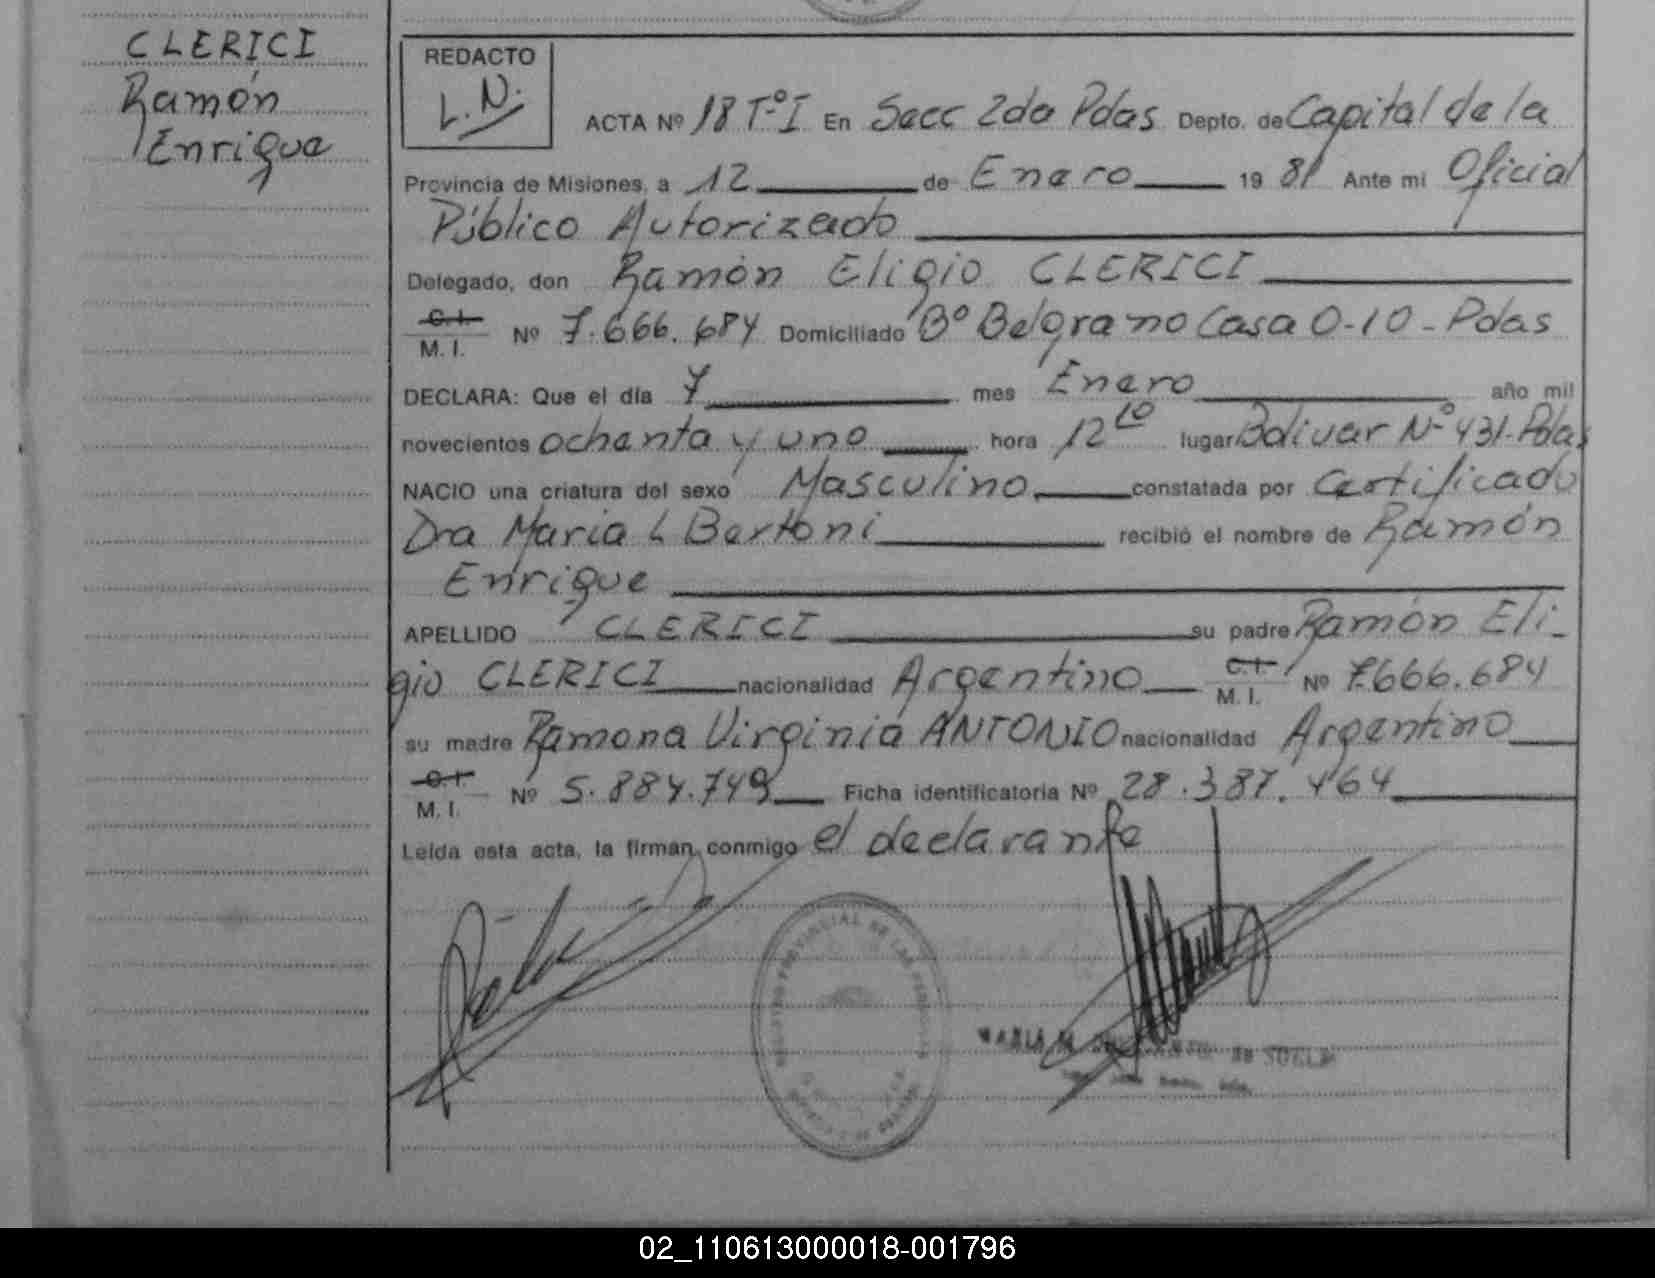 CLERICI
Ramón
Enrique
REDACTO
L.N.
ACTA Nº 18 Tº I En Secc 2da Pdas Depto. de Capital de la
Provincia de Misiones, a 12 de Enero 19 81 Ante mi Oficial
Público Autorizado
Delegado, don Ramón Eligio CLERICI
C.I.
M.I. Nº 7.666.684 Domiciliado Bº Belgrano Casa 0-10 - Pdas
DECLARA: Que el día 7 mes Enero año mil
novecientos ochenta y uno hora 12 10 lugar Bolivar Nº 431-Pdas
NACIO una criatura del sexo Masculino constatada por Certificado
Dra Maria L Bertoni recibió el nombre de Ramón
Enrique
APELLIDO CLERICI su padre Ramón Eli-
gio CLERICI nacionalidad Argentino C.I. M.I. Nº 7.666.684
su madre Ramona Virginia ANTONIO nacionalidad Argentino
C.I.
M.I. Nº 5.884.749 Ficha identificatoria Nº 28.387.464
Leída esta acta, la firman conmigo el declarante
02_110613000018-001796